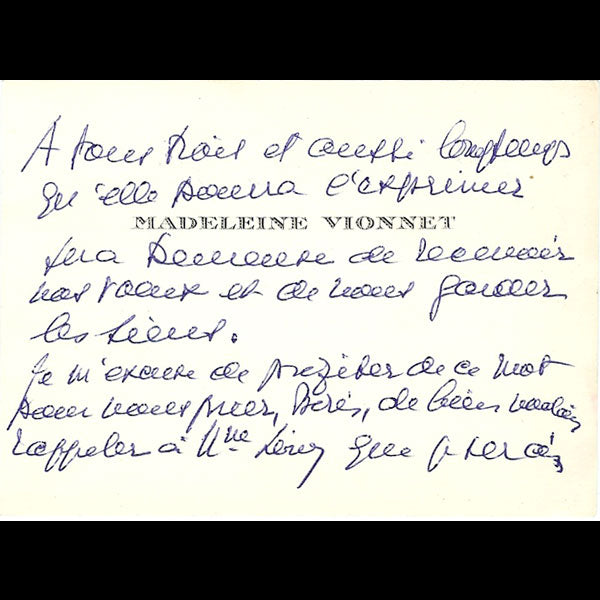 A tous trois et aussi longtemps
qu'elle pourra l'exprimer
MADELEINE VIONNET
sera heureuse de recevoir
vos vœux et de vous donner
les siens.
Je m'excuse de profiter de ce mot
pour vous prier, de bien vouloir
rappeler à Mme que